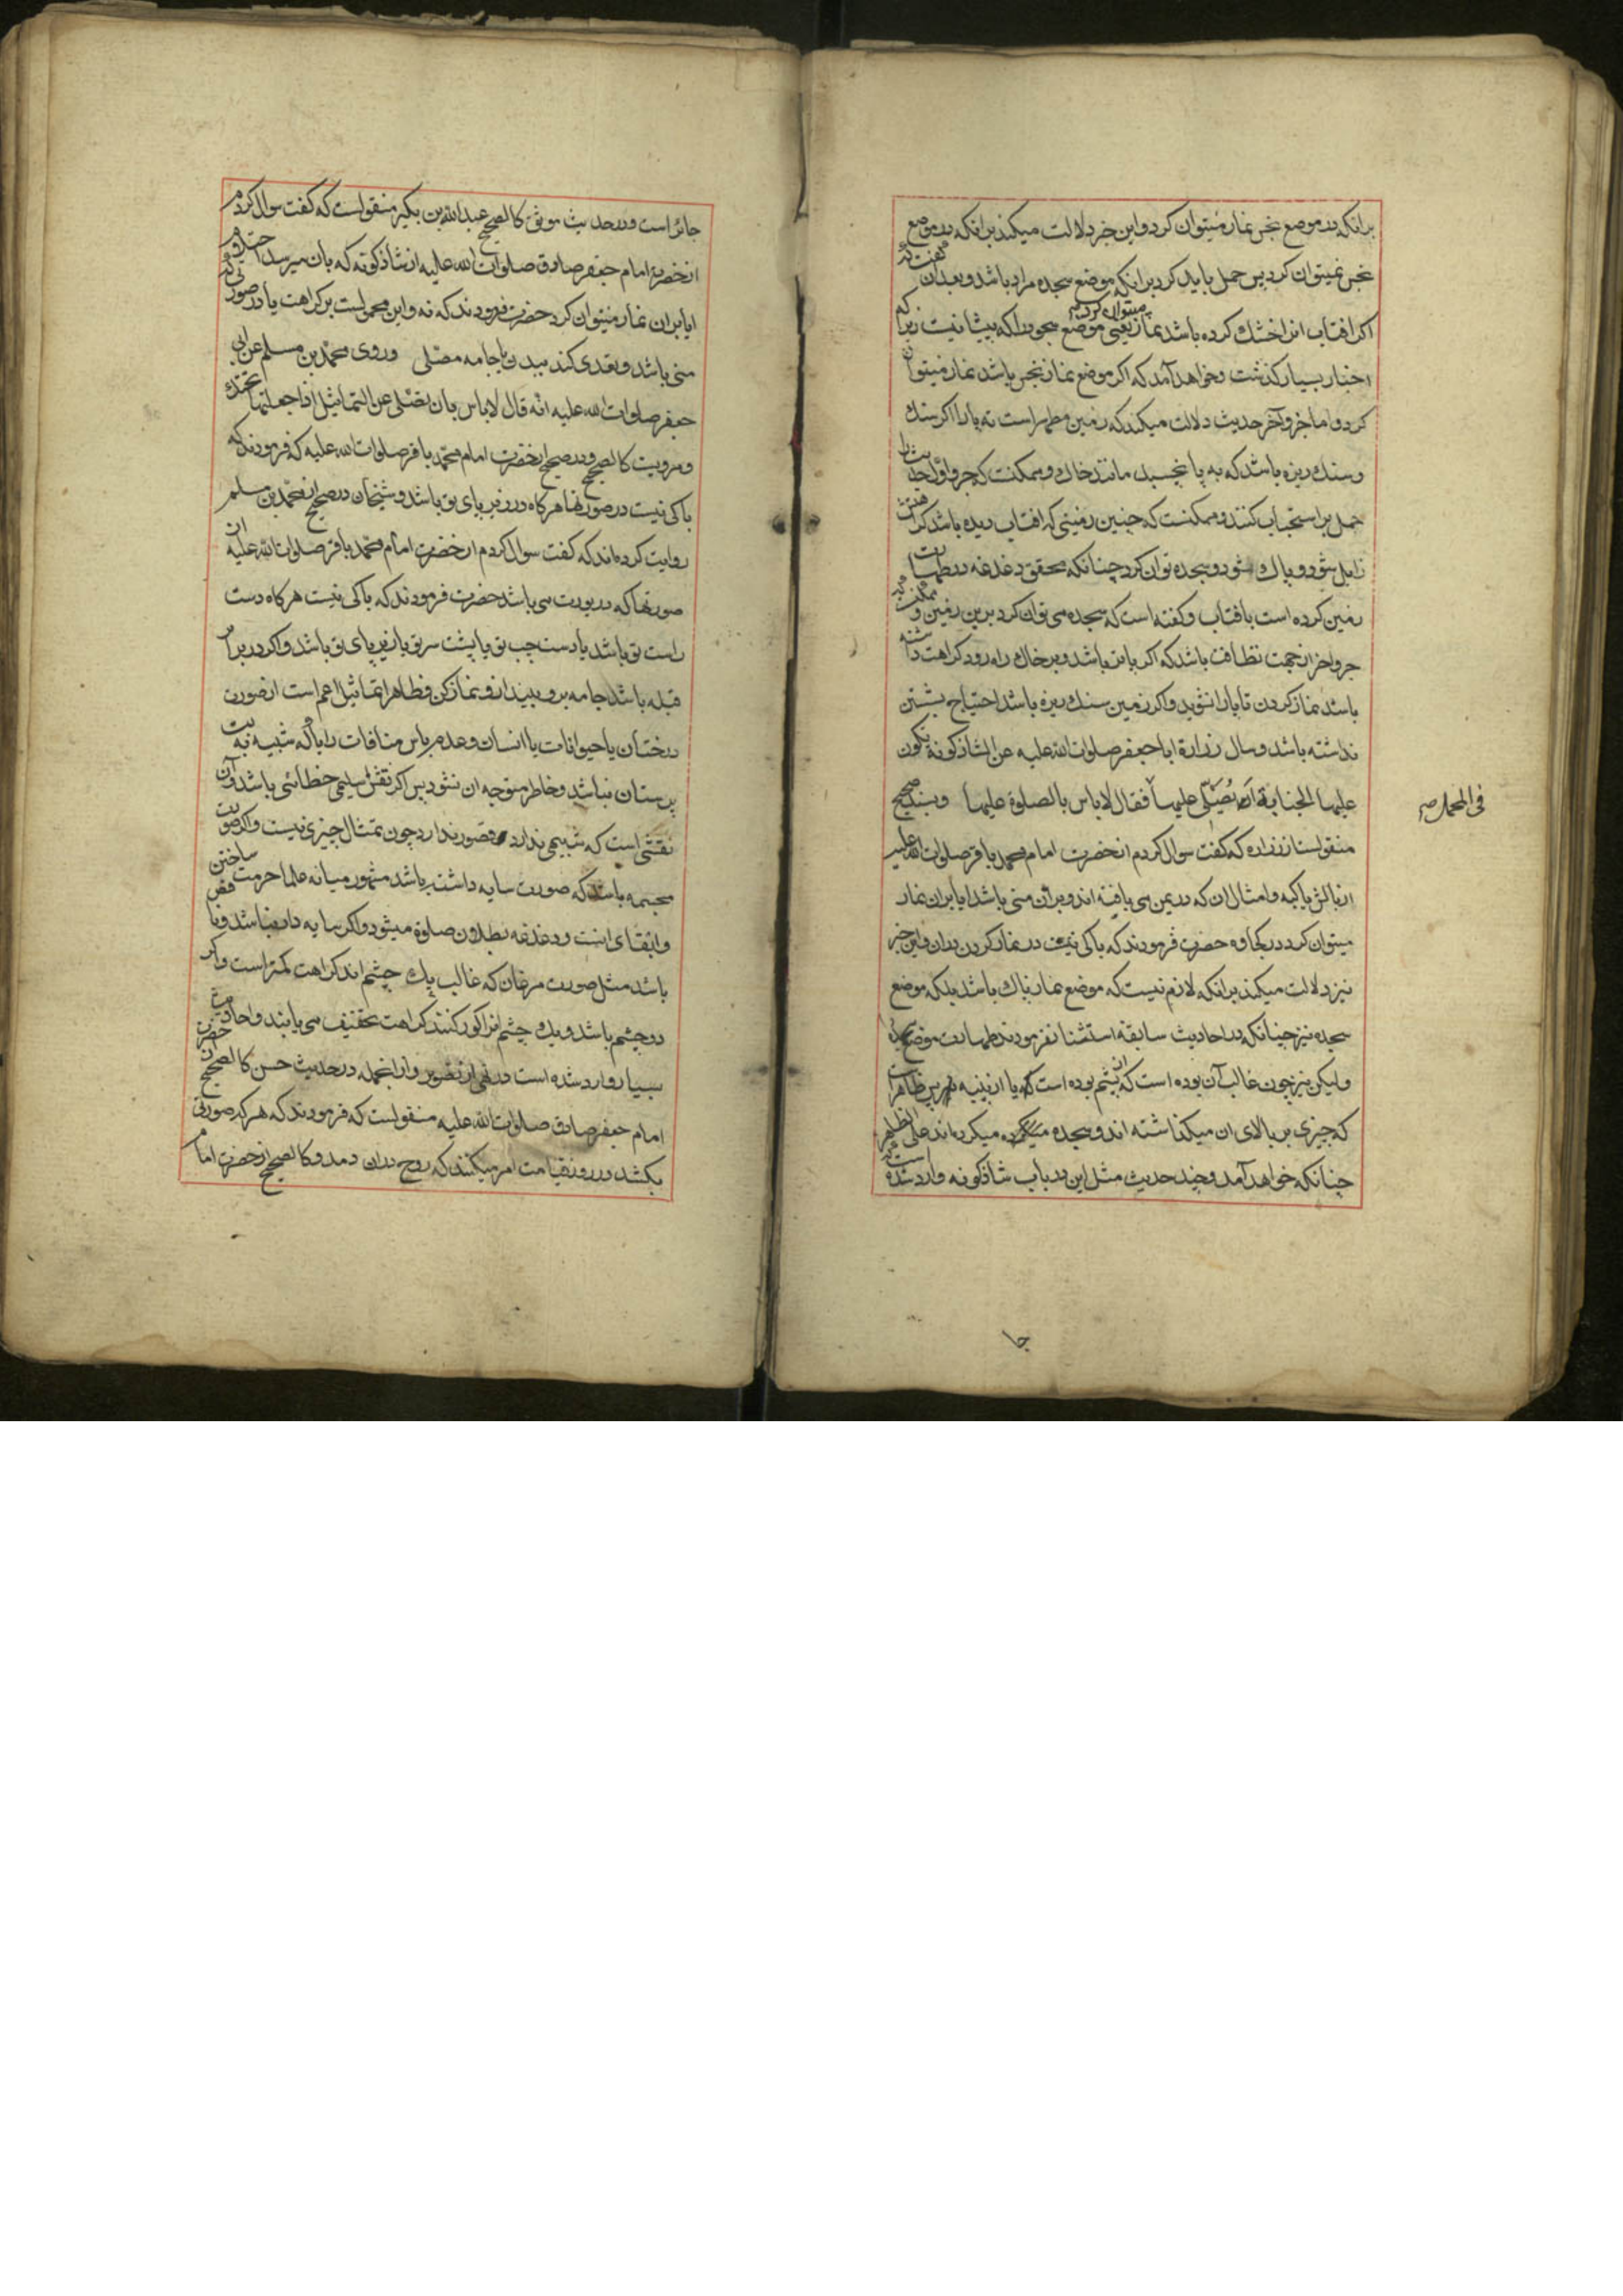 برانکه در موضع نجس نماز میتوان کرد و این خبر دلالت میکند برانکه در موضع
نجس نمیتوان کرد پس حمل باید کرد برانکه موضع سجده مراد باشد و بعد از ان
اکر افتاب انرا خشك کرده باشد نماز میتوان کرد یعنی موضع سجود را که پیشانیست زیرا که
اخبار بسیار کذشت و خواهد آمد که اکر موضع نماز نجس باشد نماز میتوان
کرد و اما جزو آخر حدیث دلالت میکند که زمین مطهر است ته پا را اکر سنك
و سنك ریزه باشد که به پا نچسبد مانند خاك و ممکنست که جزو اول حدیث را
حمل بر استحباب کنند و ممکنست که چنین زمینی که افتاب دیده باشد
زایل شود و پاك نشود و سجده توان کرد چنانکه محقق دغدغه در طهارت
زمین کرده است بافتاب و کفته است که سجده می توان کرد برین زمین و ممکنست که
جزو اخر از جهت نظافت باشد که اکر پا تر باشد و بر خاك راه رود کراهت داشته
باشد نماز کردن تا پا را نشوید و اکر زمین سنك ریزه باشد احتیاج بشستن
نداشته باشد و سال زرارة ابا جعفر صلوات الله علیه عن الشاذکونة یکون
علیها الجنابة ایصلی علیها فقال لاباس بالصلوة علیها و بسند صحیح
فی المحمل صح
منقولست از زراره که کفت سوال کردم از حضرت امام محمد باقر صلوات الله علیه
از بالش یا کپه و امثال ان که در یمن می بافته اند و بران منی باشد ایا بران نماز
میتوان کرد در کجاوه حضرت فرمودند که باکی نیست در نماز کردن بران و این خبر
نیز دلالت میکند برانکه لازم نیست که موضع نماز پاك باشد بلکه موضع
سجده نیز چنانکه در احادیث سابقه استثنا نفرمودند طهارت موضع سجده
ولیکن نیز چون غالب آن بوده است که از پشم بوده است یا از پنبه پس ظاهرا
که چیزی بر بالای ان میکذاشته اند و سجده میکرده اند علی الظاهر
چنانکه خواهد آمد و چند حدیث مثل این در باب شاذکونه وارد شده است که
جا
جائز است و در حدیث موثق کالصحیح عبدالله بن بکیر منقولست که کفت سوال کردم
از حضرت امام جعفر صادق صلوات الله علیه از شاذکونه که بان میرسد احتلام
ایا بران نماز میتوان کرد حضرت فرمودند که نه و این محمولست بر کراهت یا در صورتی که
منی باشد و تعدی کند ببدن یا جامه مصلی و روی محمد بن مسلم عن ابی
جعفر صلوات الله علیه انه قال لاباس بان تصلی عن التماثیل اذا جعلتها تحتك
و مرویست کالصحیح و در صحیح از حضرت امام محمد باقر صلوات الله علیه که فرمودند که
باکی نیست در صورتها هرکاه در زیر پای تو باشد و شیخان در صحیح از محمد بن مسلم
روایت کرده اند که کفت سوال کردم از حضرت امام محمد باقر صلوات الله علیه از
صورتها که در بورت می باشد حضرت فرمودند که باکی نیست هرکاه دست
راست تو باشد یا دست چپ تو یا پشت سر تو یا زیر پای تو باشد و اکر در برابر
قبله باشد جامه برو بینداز و نماز کن و ظاهرا تماثیل اعم است از صورت
درختان یا حیوانات یا انسان و عدم باس منافات دارد با آنکه شبیه به بت
پرستان نباشد و خاطر متوجه ان نشود پس اکر نقش سلیمی خطائی باشد و آن
نقشی است که شبیهی ندارد قصور ندارد چون تمثال چیزی نیست و اکر صورت
مجسمه باشد که صورت سایه داشته باشد مشهور میانه علما حرمت ساختن
و ابقای انست و دغدغه بطلان صلوة میشود و اکر سایه دار نباشد و ناقص
باشد مثل صورت مرغان که غالب یك چشم اند کراهت کمتر است و اکر
دو چشم باشد و یك چشم انرا کور کنند کراهت تخفیف می یابند و احادیث
بسیار وارد شده است در نهی از تصویر و از انجمله در حدیث حسن کالصحیح از حضرت
امام جعفر صادق صلوات الله علیه منقولست که فرمودند که هرکه صورتی
بکشد در روز قیامت امر میکنند که روح دران دمد و کالصحیح از حضرت امام